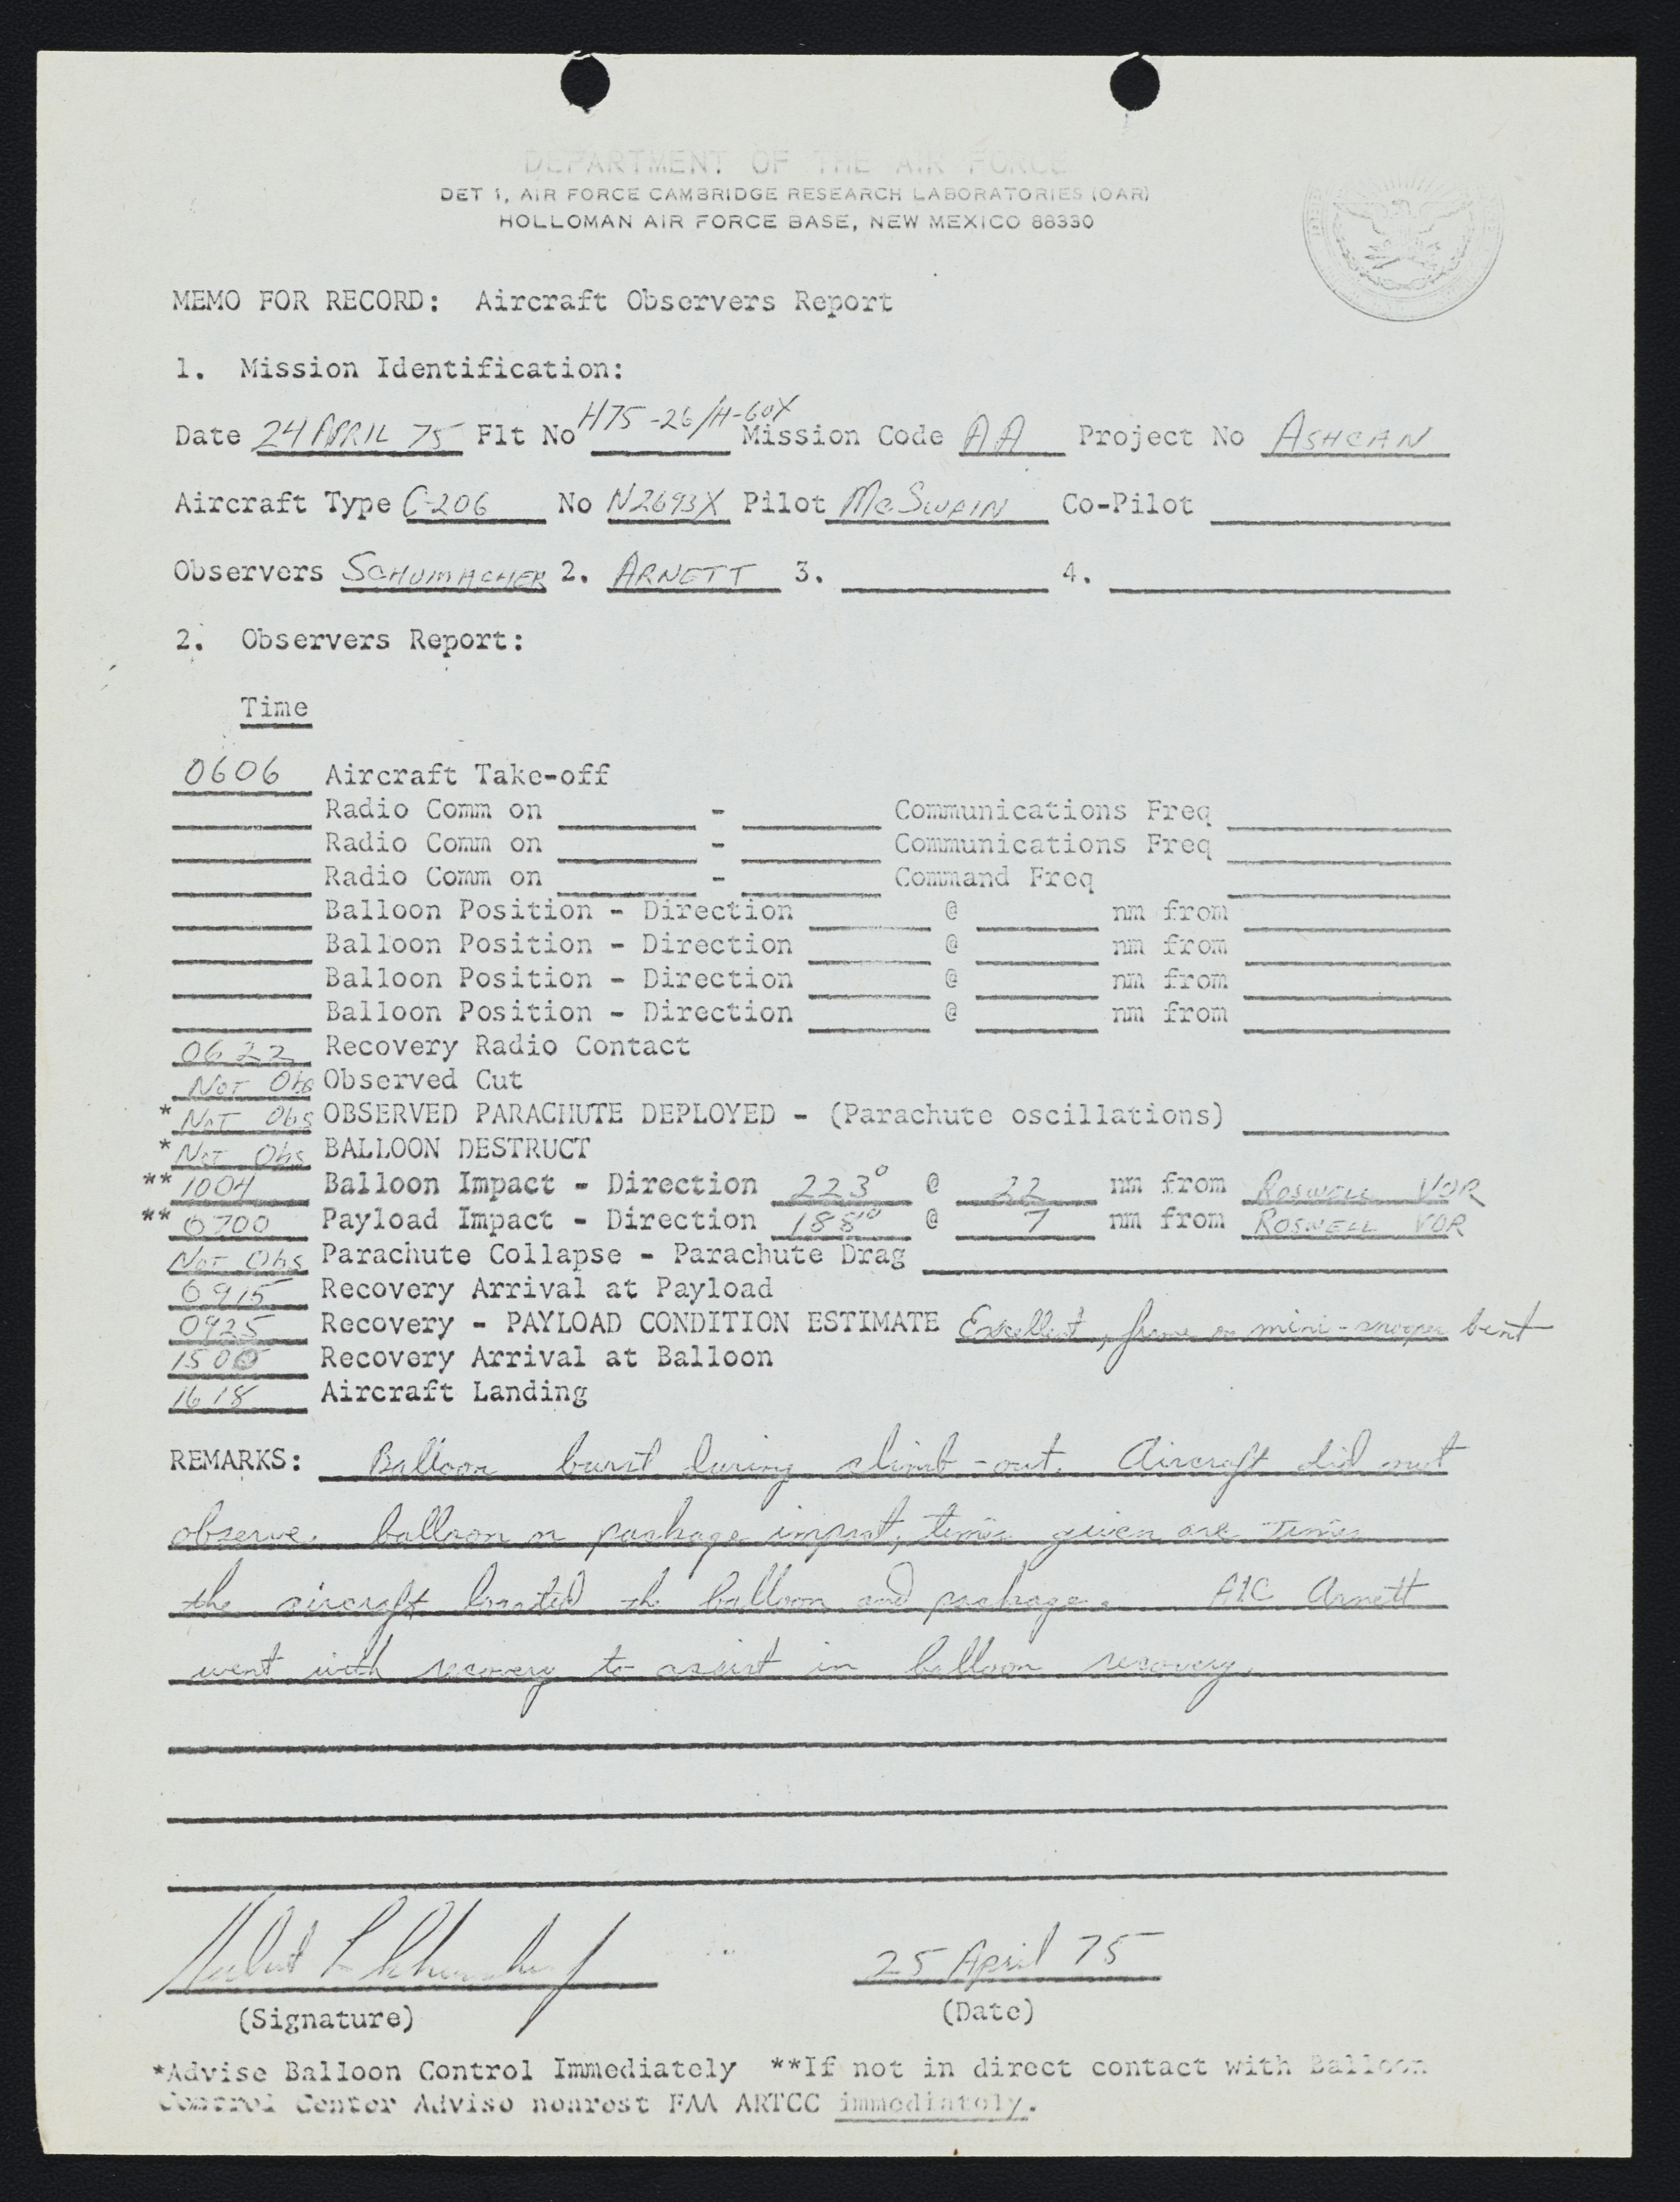 DEPARTMENT OF THE AIR FORCE
DET 1, AIR FORCE CAMBRIDGE RESEARCH LABORATORIES (OAR)
HOLLOMAN AIR FORCE BASE, NEW MEXICO 88330
MEMO FOR RECORD: Aircraft Observers Report
1. Mission Identification:
Date 24 APRIL 75 Flt No H75-26/H-60X Mission Code AA Project No ASHCAN
Aircraft Type C-206 No N2693X Pilot McSWAIN Co-Pilot
Observers SCHUMACHER 2. ARNETT 3. 4.
2. Observers Report:
Time
0606 Aircraft Take-off
Radio Comm on - Communications Freq
Radio Comm on - Communications Freq
Radio Comm on - Command Freq
Balloon Position - Direction @ nm from
Balloon Position - Direction @ nm from
Balloon Position - Direction @ nm from
Balloon Position - Direction @ nm from
0622 Recovery Radio Contact
Not Obs Observed Cut
* Not Obs OBSERVED PARACHUTE DEPLOYED - (Parachute oscillations)
* Not Obs BALLOON DESTRUCT
** 1004 Balloon Impact - Direction 223° @ 22 nm from ROSWELL VOR
** 0700 Payload Impact - Direction 188° @ 7 nm from ROSWELL VOR
Not Obs Parachute Collapse - Parachute Drag
0915 Recovery Arrival at Payload
0925 Recovery - PAYLOAD CONDITION ESTIMATE Excellent, frame on mini-snooper bent
1500 Recovery Arrival at Balloon
1618 Aircraft Landing
REMARKS: Balloon burst during climb-out. Aircraft did not
observe balloon or package impact, times given are times
the aircraft located the balloon and package. A1C Arnett
went with recovery to assist in balloon recovery.
25 April 75
(Signature) (Date)
*Advise Balloon Control Immediately **If not in direct contact with Balloon
Control Center Advise nearest FAA ARTCC immediately.